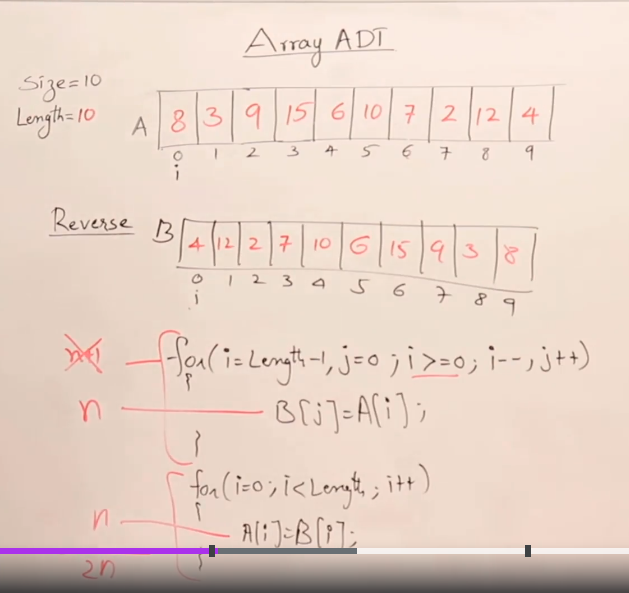 Array ADT
Size=10
Length=10
A 8 3 9 15 6 10 7 2 12 4
0 1 2 3 4 5 6 7 8 9
i
Reverse B 4 12 2 7 10 6 15 9 3 8
0 1 2 3 4 5 6 7 8 9
i
n+1 for(i=Length-1, j=0 ; i>=0; i--, j++)
{
n B[j]=A[i];
}
for(i=0; i<Length; i++)
{
n A[i]=B[i];
2n }